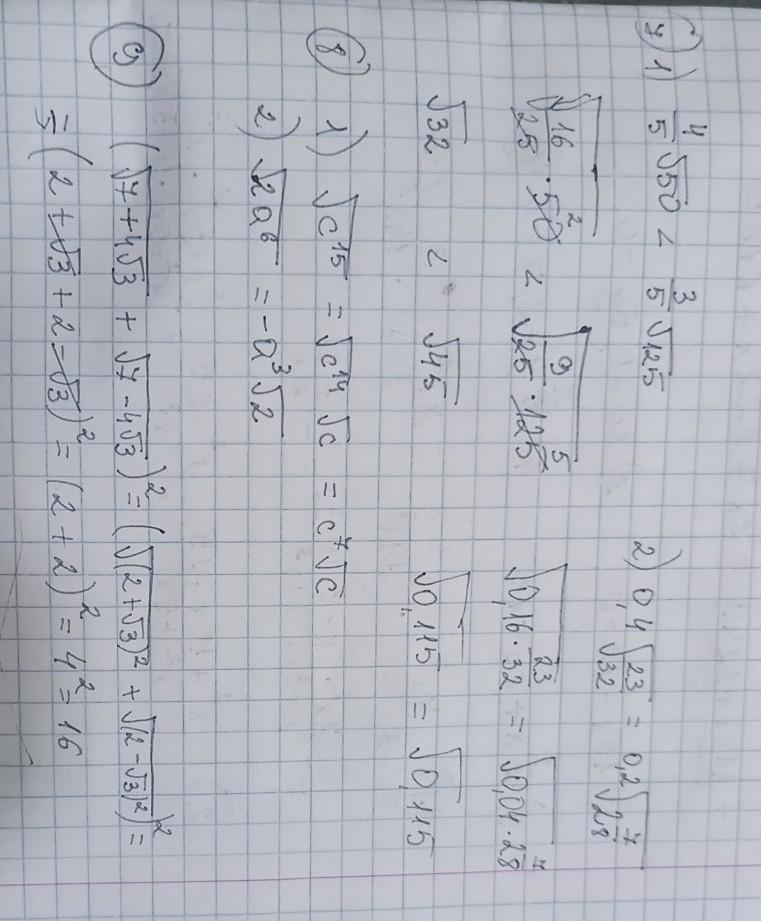 7) 1) 4/5 √50 < 3/5 √125
√(16/25 · 50 2) < √(9/25 · 125 5)
√32 < √45
2) 0,4 √(23/32) = 0,2 √(7/28)
√(0,16 · 23/32) = √(0,04 · 7/28)
√0,115 = √0,115
8) 1) √c¹⁵ = √c¹⁴ √c = c⁷√c
2) √2a⁶ = -a³√2
9) (√(7+4√3) + √(7-4√3))² = (√(2+√3)² + √(2-√3)²)² =
= (2+√3+2-√3)² = (2+2)² = 4² = 16